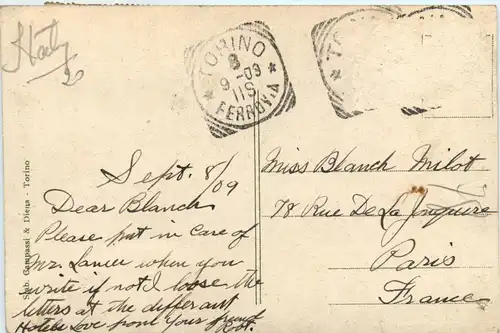 Italy
TORINO
8
9-09
11S
FERROVIA
TO
Stab. Campassi & Diena - Torino
Sept. 8/09
Dear Blanch
Please put in care of
Mr. Lance when you
write if not I loose the
letters at the differant
Hotels Love from Your friend
Miss Blanch Milot
78 Rue De La Jonquiere
Paris
France